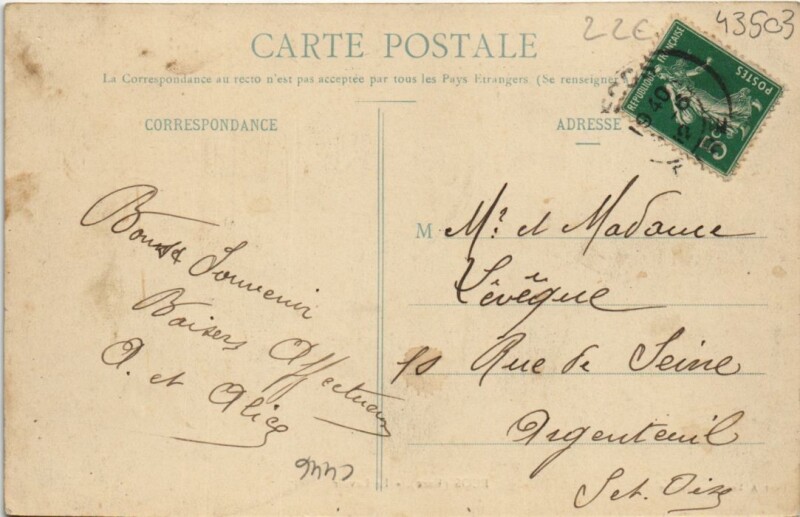 22€
43503
CARTE POSTALE
La Correspondance au recto n'est pas acceptée par tous les Pays Etrangers (Se renseigner
CORRESPONDANCE
ADRESSE
REPUBLIQUE FRANÇAISE
POSTES
5c
Souvenir
Baisers Affectueux
A. et Alice
M Mr et Madame
Lévêque
10 Rue de Seine
Argenteuil
Set. Oise